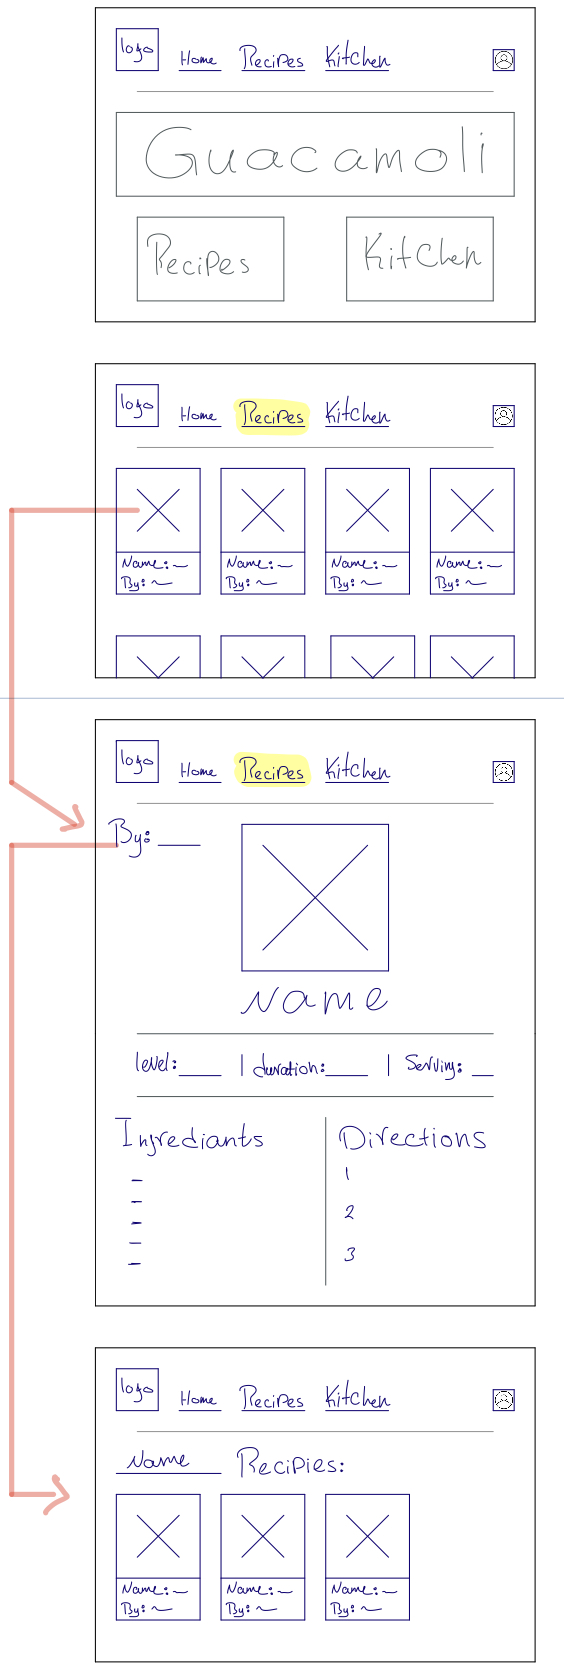 logo Home Recipes Kitchen
Guacamoli
Recipes Kitchen
logo Home Recipes Kitchen
Name: Name: Name: Name:
By: By: By: By:
logo Home Recipes Kitchen
By:
Name
level: | duration: | Serving:
Ingrediants Directions
1
2
3
logo Home Recipes Kitchen
Name Recipies:
Name: Name: Name:
By: By: By: